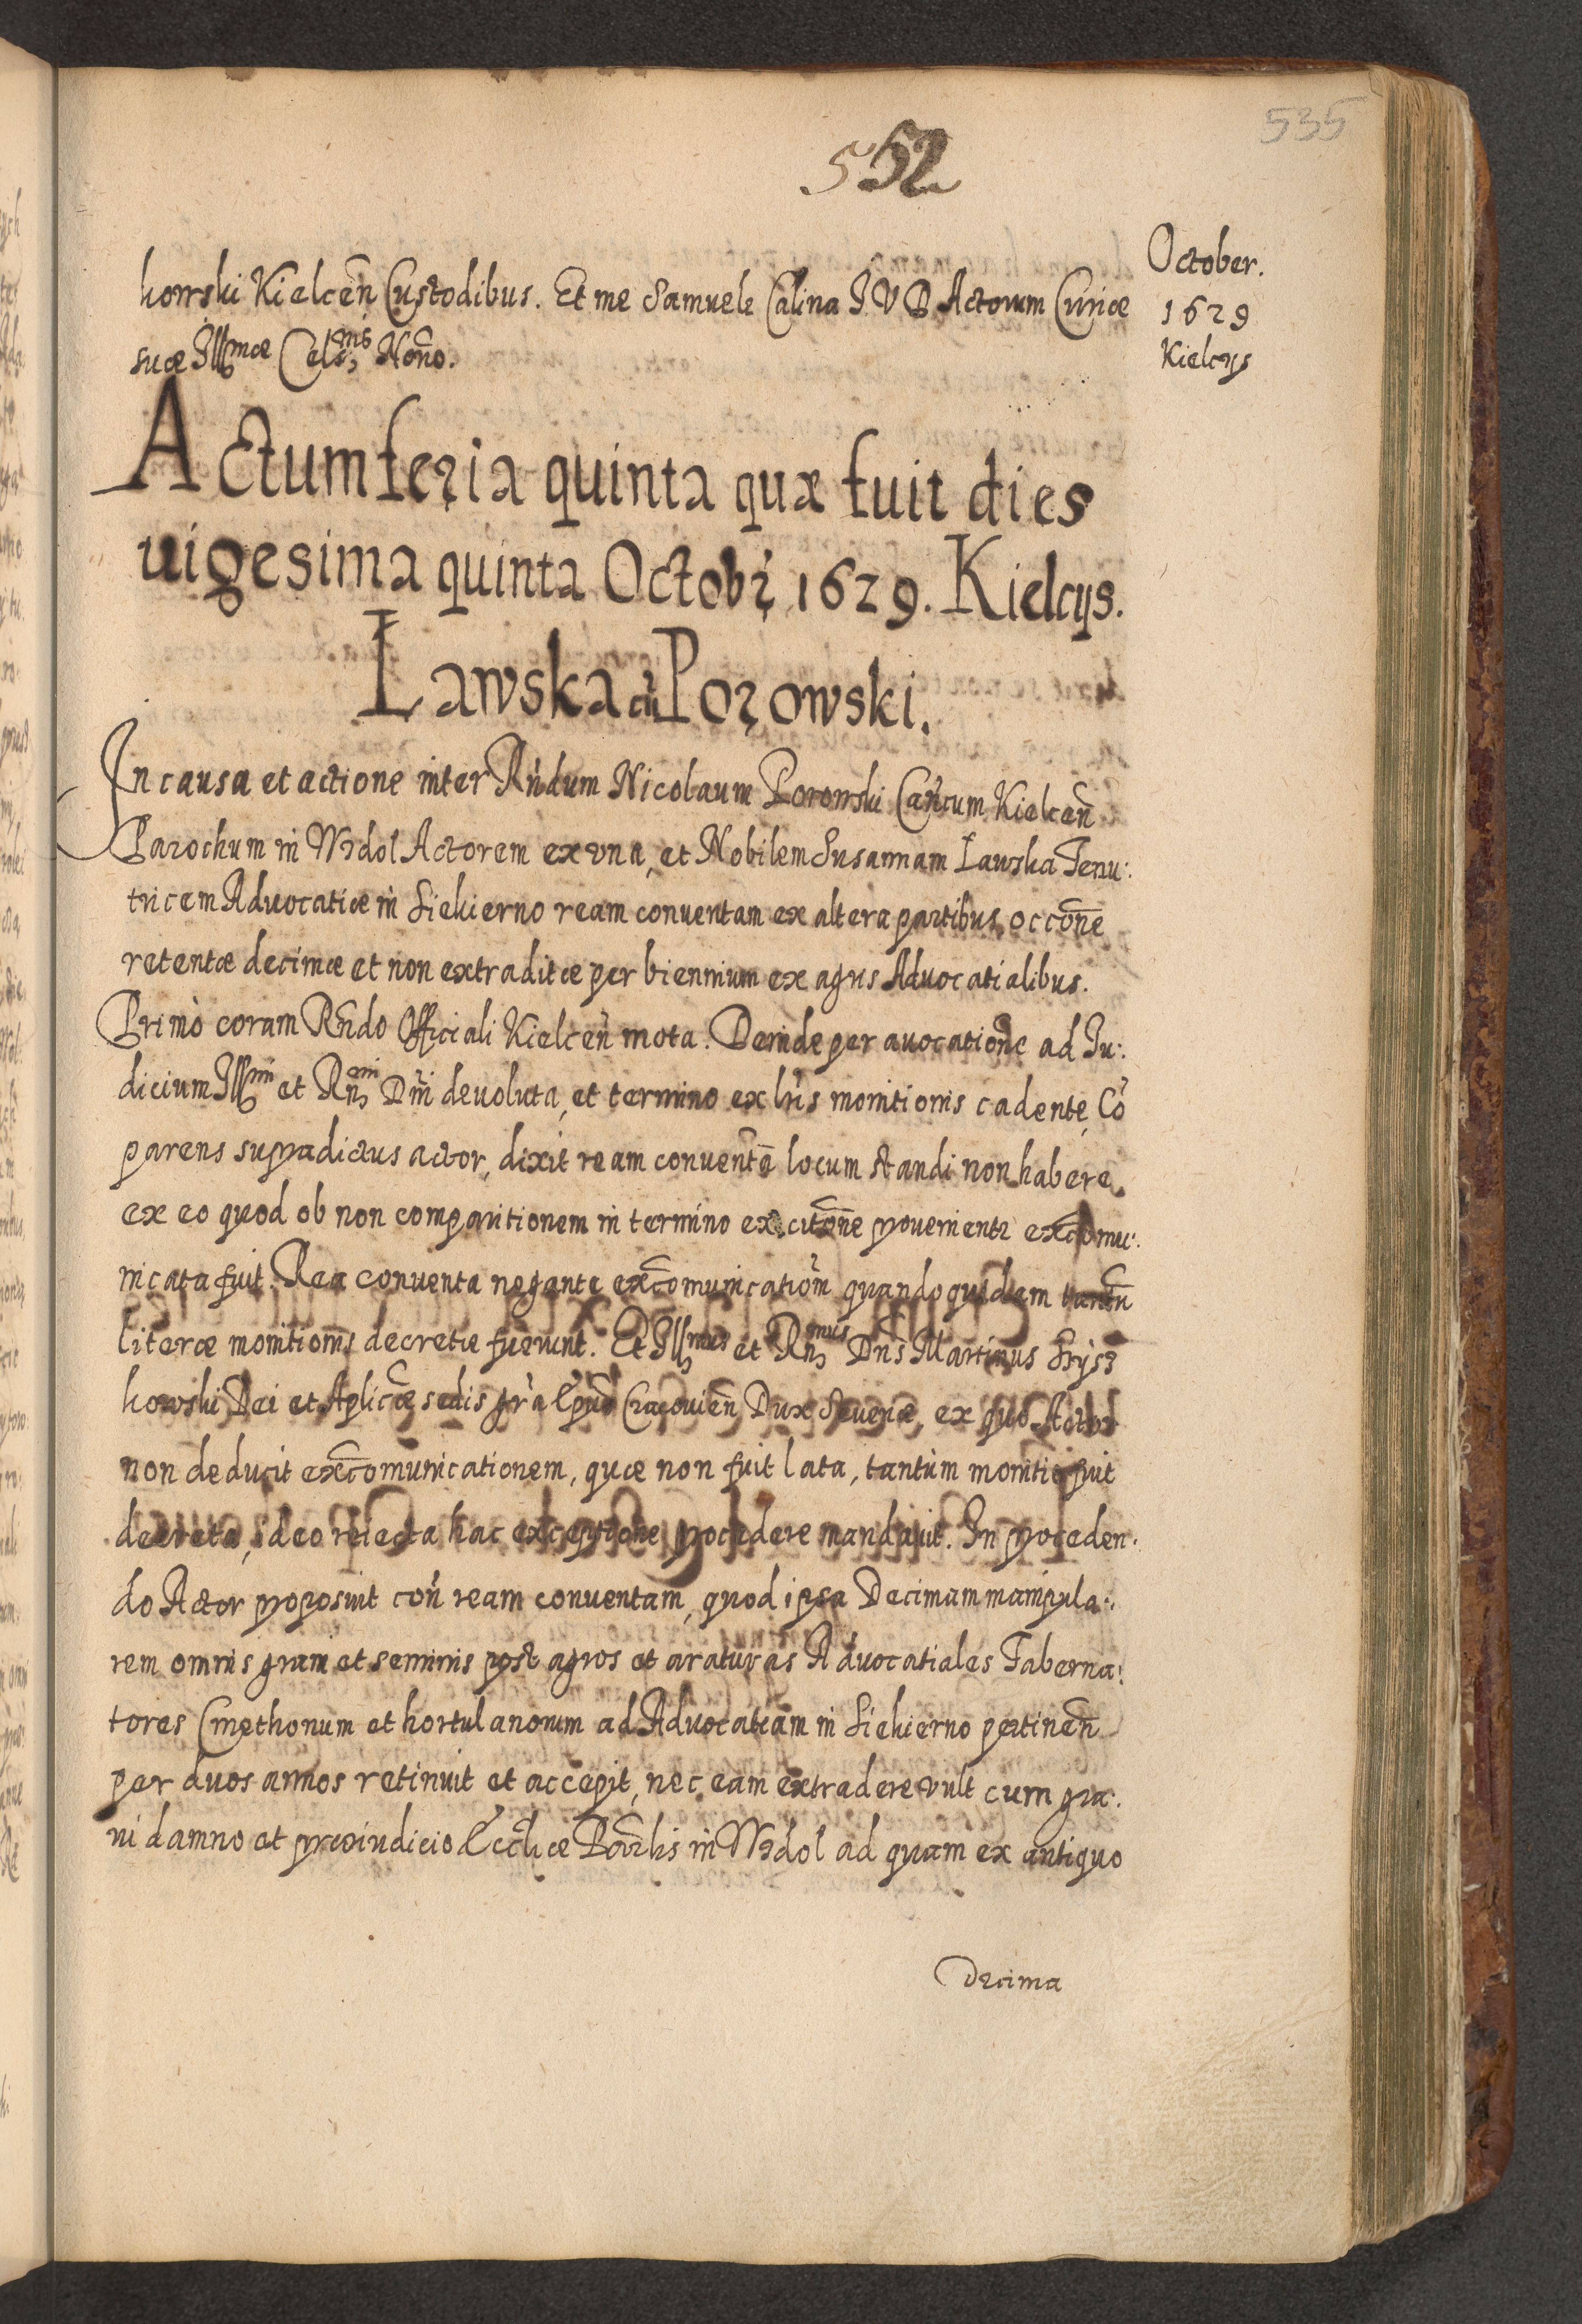 535
552
October.
1629
Kielcys
howski Kielcen̄ Custodibus. Et me Samuele Calina I V D Actorum Curiæ
suæ Illmæ Celsnis Nōno.
Actum feria quinta quæ fuit dies
uigesima quinta Octobr 1629. Kielcys.
Lawska cū Porowski.
In causa et actione inter Rn̄dum Nicolaum Porowski Can̄cum Kielcen̄
Parochum in Wzdol Actorem ex vna, et Nobilem Susannam Lawska Tenu:
tricem Advocatiæ in Siekierno ream conventam ex altera partibus, occōne
retentæ decimæ et non extraditæ per biennium ex agris Advocatialibus.
Primò coram Rn̄do Officiali Kielcen̄ mota. Deinde per auocatione ad Iu:
dicium Illmi et Rn̄mi Dn̄i deuoluta, et termino ex lr̄is monitionis cadente, Cō
parens supradictus actor, dixit ream conuentā locum standi non habere,
ex eo quod ob non comparitionem in termino ex citōne prouenienti excōmu:
nicata fuit. Rea conuenta negante excōmunicatiōm quandoquidem tantū
literæ monitionis decretæ fuerunt. Et Illmus et Rn̄mus Dn̄s Martinus Szysz
howski Dei et Aplicæ sedis gr̄a Ep̄us Cracouien̄ Dux Seueriæ, ex quo Actor
non deducit excōmunicationem, quæ non fuit lata, tantùm monitio fuit
decreta, ideo reiecta hac exceptione procedere mandauit. In proceden.
do Actor proposuit con̄ ream conuentam, quod ipsa Decimam manipula:
rem omnis grani et seminis post agros et araturas Advocatiales Taberna:
tores Cmethonum et hortulanorum ad Advocatiam in Siekierno pertinen̄
per duos annos retinuit et accepit, nec eam extradere vult cum gra:
ui damno et præiudicio Ecclīæ Par̄lis in Wzdol ad quam ex antiquo
Decima